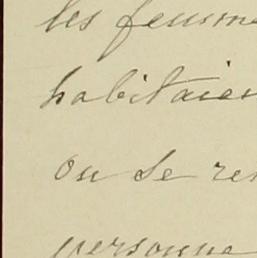 les femme
habitaien
ou se re
personne